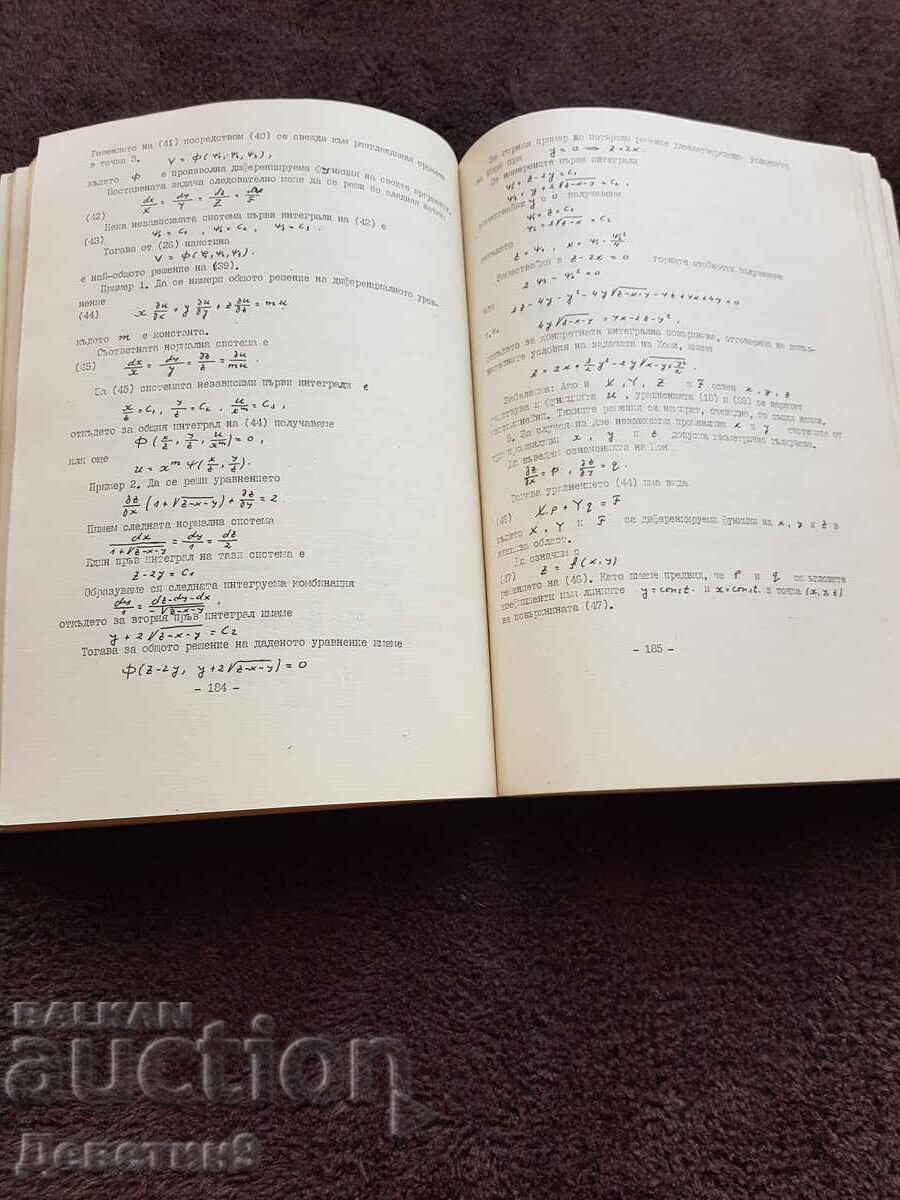 Решението на (41) посредством (40) се свежда към разгледания проблем
в точка 3. V = Φ(ψ₁, ψ₂, ψ₃),
където Φ е произволна диференцируема функция на своите аргументи.
Поставената задача следователно може да се реши по следния начин:
(42) dx/X = dy/Y = dz/Z =
Нека независимата система първи интеграли на (42) е
(43) ψ₁ = C₁, ψ₂ = C₂, ψ₃ = C₃.
Тогава от (26) наистина
V = Φ(ψ₁, ψ₂, ψ₃),
е най-общото решение на (39).
Пример 1. Да се намери общото решение на диференциалното урав-
нение
(44) x ∂u/∂x + y ∂u/∂y + z ∂u/∂z = mu
където m е константа.
Съответната нормална система е
(45) dx/x = dy/y = dz/z = du/mu.
За (45) системата независими първи интеграли е
x/z = C₁, y/z = C₂, u/xᵐ = C₃,
откъдето за общия интеграл на (44) получаваме
Φ(x/z, y/z, u/xᵐ) = 0,
или още
u = xᵐ Ψ(x/z, y/z).
Пример 2. Да се реши уравнението
∂z/∂x (1+√z-x-y) + ∂z/∂y = 2.
Пишем следната нормална система
dx/1+√z-x-y = dy/1 = dz/2
Един пръв интеграл на тази система е
z-2y = C₁
Образуваме си следната интегруема комбинация
dy/1 = dz-dy-dx/-√z-x-y,
откъдето за втория пръв интеграл имаме
y+2√z-x-y = C₂
Тогава за общото решение на даденото уравнение имаме
Φ(z-2y, y+2√z-x-y) = 0
- 184 -
За горния пример да потърсим решение удовлетворяващо условията
на Коши при y = 0 ⟹ z = 2x.
От намерените първи интеграли
ψ₁ = z-2y = C₁
ψ₂ = y+2√z-x-y = C₂,
y = 0 получаваме
ψ₁ = z = C₁
ψ₂ = 2√z-x = C₂
откъдето
z = ψ₁, x = ψ₁ - ψ₂²/4.
Заместваме в z-2x=0 горните стойности получаваме
2ψ₁ - ψ₂² = 0
или
т.е.
4y√z-x-y = 4x-2z-y².
откъдето за конкретната интегрална повърхнина, отговаряща на допъл-
нителните условия на задачата на Коши, имаме
Забележка: Ако в X, Y, Z и F освен x, y, z
участвува и функцията u, уравненията (18) и (39) се наричат
квазилинейни. Техните решения се намират, очевидно, по същия начин.
5. За случая на две независими променливи x и y системата от
три променливи x, y и z допуска геометрично тълкуване.
Да въведем означенията на Монж
∂z/∂x = p, ∂z/∂y = q.
Тогава уравнението (44) има вида
(46) X.p + Y.q = F
където X, Y и F са диференцируеми функции на x, y и z в
някаква област.
Да означим с
(47) z = f(x,y)
решението на (46). Като имаме предвид, че p и q са ъгловите
коефициенти към линиите y = const. и x = const. в точка (x, y, z)
на повърхнината (47).
- 185 -
BALKAN
auction
Девстин9